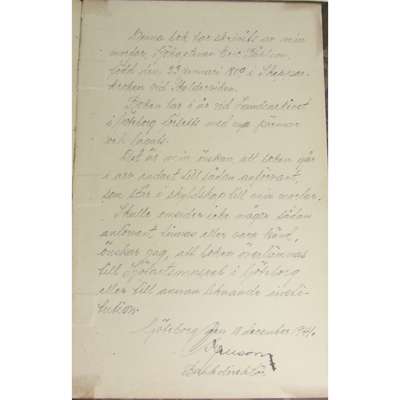 Denna bok har skrivits av min
morfar, Sjökaptenen Eric
född den 23 januari 18 i
kroken vid
Boken har i år vid Landsarkivet
i Göteborg försetts med nya pärmar
och lagats.
Det är min önskan, att boken går
i arv endast till sådan anförvant,
som står i skyldskap till min morfar.
Skulle emsider icke någon sådan
anförvant finnas eller vara känd,
önskar jag, att boken överlämnas
till Sjöfartsmuseet i Göteborg
eller till annan liknande insti-
tution.
Göteborg den 18 december 194
Bankdirektör